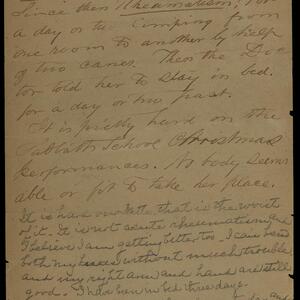 Since then Rheumatism, for
a day or two limping from
one room to another by help
of two canes. Then the Doc
tor told her to stay in bed.
for a day or two past.
It is pretty hard on the
Sabbath School Christmas
performances. No body seems
able or fit to take her place.
It is hard on that is the worst
of it. It is not acute rheumatism and
I believe I am getting better too. I can bend
both my knees without much trouble,
and my right arm and hand are still
good. I have been in bed three days.